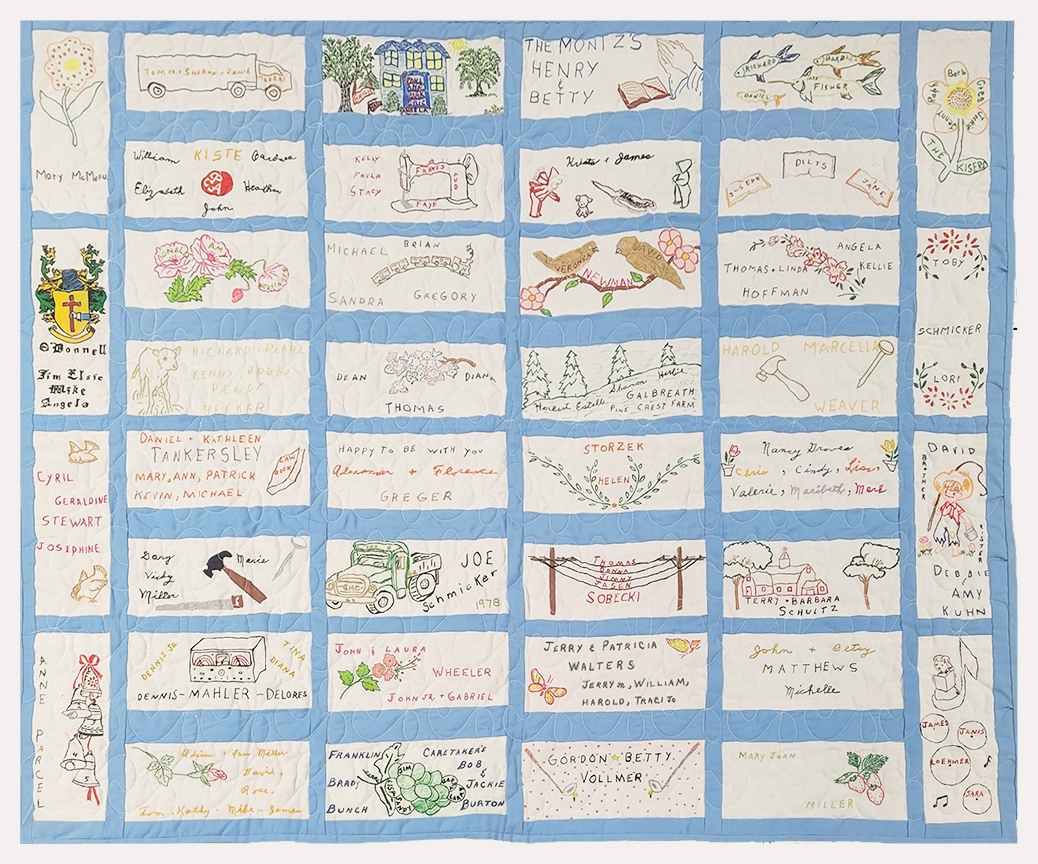 Mary
JAMES + SHARON + JAMIE
THE MONTZ'S
HENRY
&
BETTY
RICHARD
BARBARA
DANIEL
FISHER
Barb
Greg
Jenny
THE
KISERS
William KISTE Barbara
Elizabeth Heather
John
KELLY
PAULA
STACY
FRANKS
BUD
FAYE
Krista + James
DILTS
JOSEPH
JANE
MICHAEL BRIAN
SANDRA GREGORY
VERONICA
DAVID
NEWMAN
ANGELA
THOMAS + LINDA KELLIE
HOFFMAN
TOBY
SCHMICKER
LORI
O'Donnell
Jim Elsie
Mike
Angela
RICHARD + PEARL
KENNY, BOBBY
PEGGY
BECKER
DEAN DIANA
THOMAS
Sharon Herbie
Herbert Estelle GALBREATH
PINE CREST FARM
HAROLD MARCELLA
WEAVER
CYRIL
GERALDINE
STEWART
JOSEPHINE
DANIEL + KATHLEEN
TANKERSLEY
MARY, ANN, PATRICK
KEVIN, MICHAEL
LAW
BOOK
HAPPY TO BE WITH YOU
Alexander + Florence
GREGER
STORZEK
HELEN
Nancy Droves
Chris, Cindy, Lisa,
Valerie, Maribeth, Mark
DAVID
BROTHER
SISTER
DEBBIE
AMY
KUHN
Gary Marie
Vicky
Miller
GMC
JOE
Schmicker
1978
THOMAS
DANNA
JIMMY
JASEN
SOBECKI
TERRY + BARBARA
SCHULTZ
ANNE PARCEL
DENNIS JR.
TINA
DIANA
DENNIS - MAHLER - DELORES
JOHN & LAURA
WHEELER
JOHN JR. + GABRIEL
JERRY & PATRICIA
WALTERS
JERRY JR., WILLIAM,
HAROLD, TRACI JO
John + Betsy
MATTHEWS
Michelle
JAMES JANIS
LOEHMER
SARA
Miller
David,
Rose,
Tom, Kathy, Mike, James
FRANKLIN CARETAKER'S
BOB
&
BRAD, JACKIE
BUNCH BURTON
JIM
GORDON BETTY
VOLLMER
MARY JOAN
MILLER